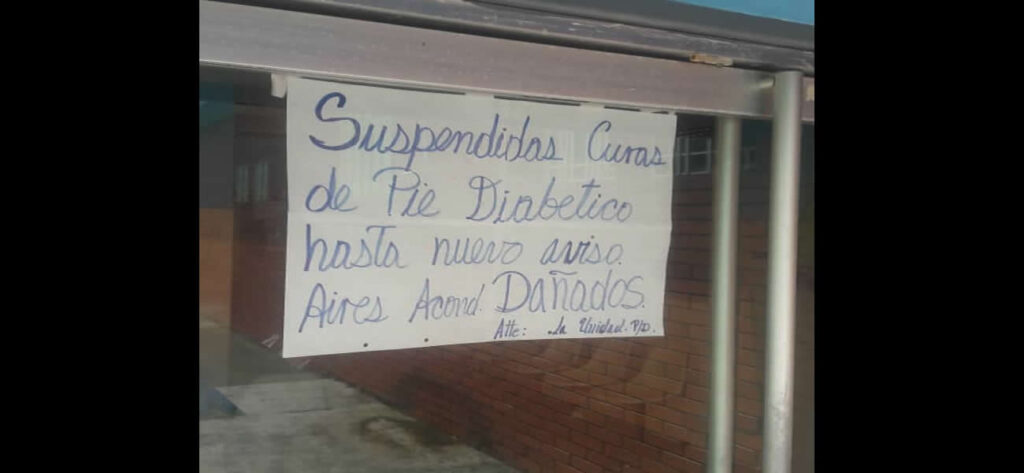 Suspendidas Curas
de Pie Diabetico
hasta nuevo aviso.
Aires Acond. Dañados.
Atte: La Unidad. P/D.